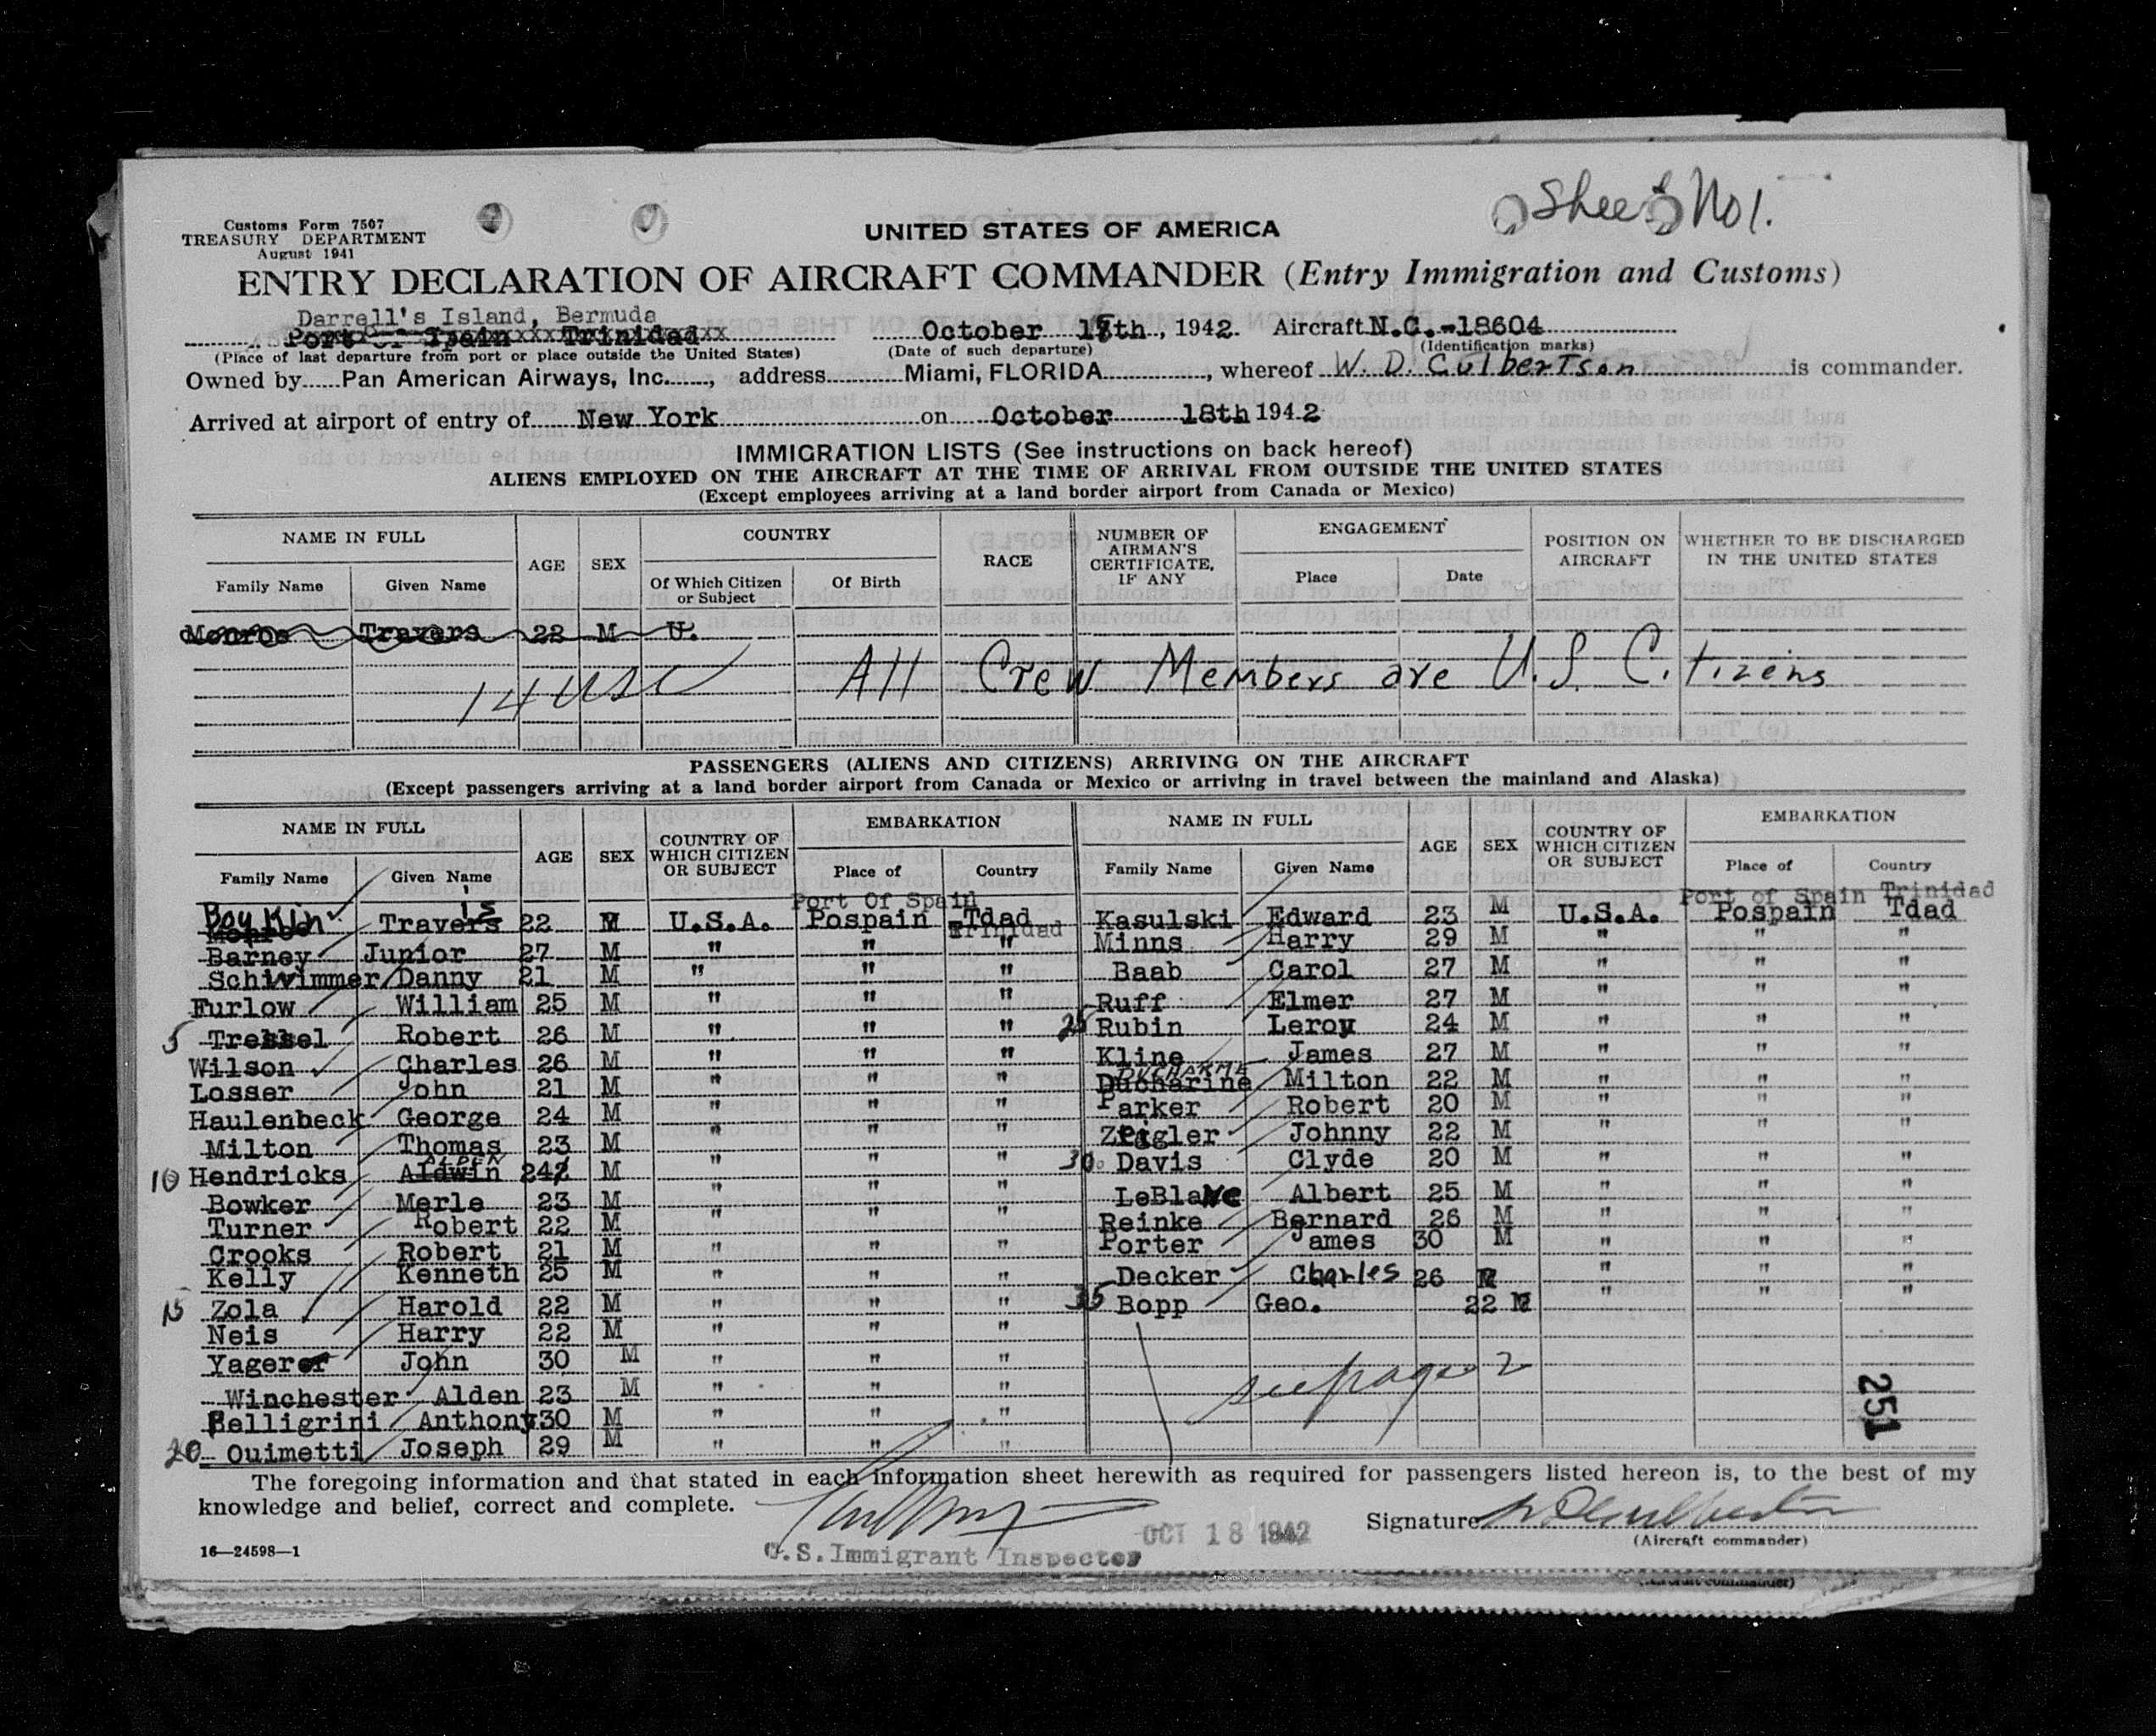 Sheet No 1.
Customs Form 7507
TREASURY DEPARTMENT
August 1941
UNITED STATES OF AMERICA
ENTRY DECLARATION OF AIRCRAFT COMMANDER (Entry Immigration and Customs)
Darrell's Island, Bermuda
Port Of Spain Trinidad October 18th, 1942. Aircraft N.C.-18604
(Place of last departure from port or place outside the United States) (Date of such departure) (Identification marks)
Owned by Pan American Airways, Inc., address Miami, FLORIDA, whereof W. D. Culbertson is commander.
Arrived at airport of entry of New York on October 18th 1942
IMMIGRATION LISTS (See instructions on back hereof)
ALIENS EMPLOYED ON THE AIRCRAFT AT THE TIME OF ARRIVAL FROM OUTSIDE THE UNITED STATES
(Except employees arriving at a land border airport from Canada or Mexico)
NAME IN FULL AGE SEX COUNTRY RACE NUMBER OF AIRMAN'S CERTIFICATE, IF ANY ENGAGEMENT POSITION ON AIRCRAFT WHETHER TO BE DISCHARGED IN THE UNITED STATES
Family Name Given Name Of Which Citizen or Subject Of Birth Place Date
Monroe Travers 22 M U.
14 USC All Crew Members are U.S. Citizens
PASSENGERS (ALIENS AND CITIZENS) ARRIVING ON THE AIRCRAFT
(Except passengers arriving at a land border airport from Canada or Mexico or arriving in travel between the mainland and Alaska)
NAME IN FULL AGE SEX COUNTRY OF WHICH CITIZEN OR SUBJECT EMBARKATION NAME IN FULL AGE SEX COUNTRY OF WHICH CITIZEN OR SUBJECT EMBARKATION
Family Name Given Name Place of Country Family Name Given Name Place of Country
Port Of Spain Port of Spain Trinidad
Boykin Travers 22 M U.S.A. Pospain Tdad Kasulski Edward 23 M U.S.A. Pospain Tdad
Monroe is Trinidad
Barney Junior 27 M " " " Minns Harry 29 M " " "
Schwimmer Danny 21 M " " " Baab Carol 27 M " " "
Furlow William 25 M " " " Ruff Elmer 27 M " " "
5 Tressel Robert 26 M " " " 25 Rubin Leroy 24 M " " "
Wilson Charles 26 M " " " Kline James 27 M " " "
DUCHARME
Losser John 21 M " " " Ducharine Milton 22 M " " "
Haulenbeck George 24 M " " " Parker Robert 20 M " " "
Milton Thomas 23 M " " " Zeigler Johnny 22 M " " "
ALDEN
10 Hendricks Aldwin 24 M " " " 30 Davis Clyde 20 M " " "
Bowker Merle 23 M " " " LeBlanc Albert 25 M " " "
Turner Robert 22 M " " " Reinke Bernard 26 M " " "
Crooks Robert 21 M " " " Porter James 30 M " " "
Kelly Kenneth 25 M " " " Decker Charles 26 M " " "
15 Zola Harold 22 M " " " 35 Bopp Geo. 22 M " " "
Neis Harry 22 M " " "
Yagerer John 30 M " " " see page 2
Winchester Alden 23 M " " "
Pelligrini Anthony 30 M " " "
20 Ouimetti Joseph 29 M " " "
251
The foregoing information and that stated in each information sheet herewith as required for passengers listed hereon is, to the best of my
knowledge and belief, correct and complete.
Signature W D Culbertson
(Aircraft commander)
OCT 18 1942
U.S. Immigrant Inspector
16—24598—1